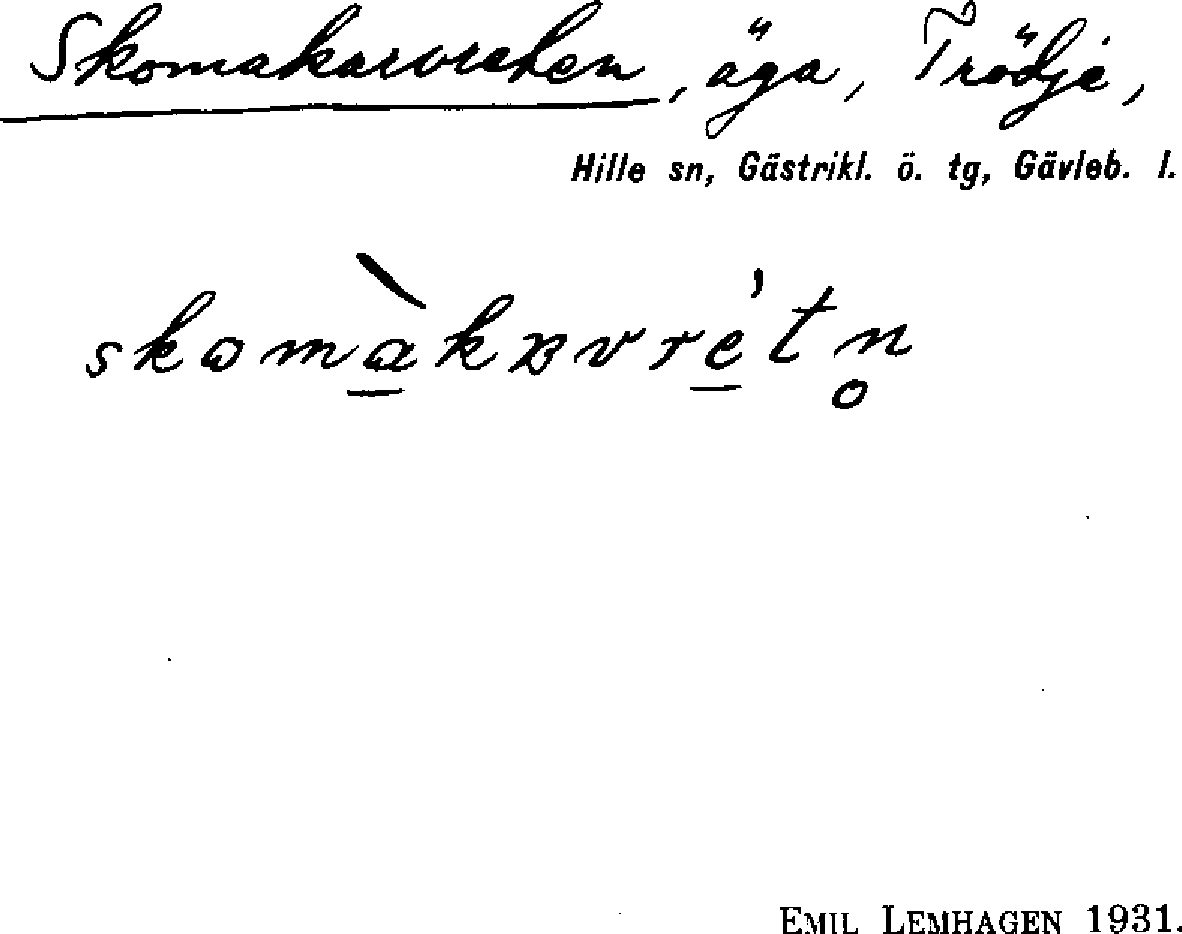 Skomakarvreten, äga, Trödje,
Hille sn, Gästrikl. ö. tg, Gävleb. l.
EMIL LEMHAGEN 1931.